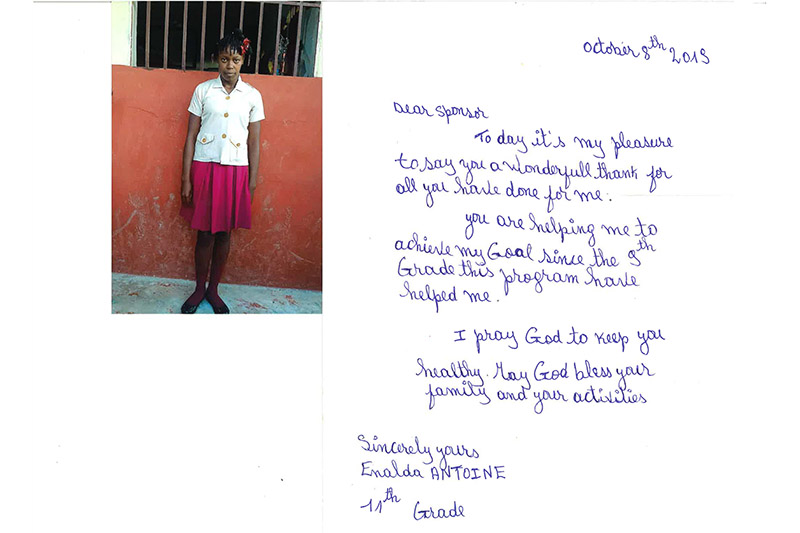 October 8th 2019
Dear Sponsor
To day it's my pleasure
to say you a wonderfull thank for
all you have done for me.
you are helping me to
achieve my Goal since the 9th
Grade this program have
helped me.
I pray God to keep you
healthy. May God bless your
family and your activities
Sincerely yours
Enalda ANTOINE
11th Grade